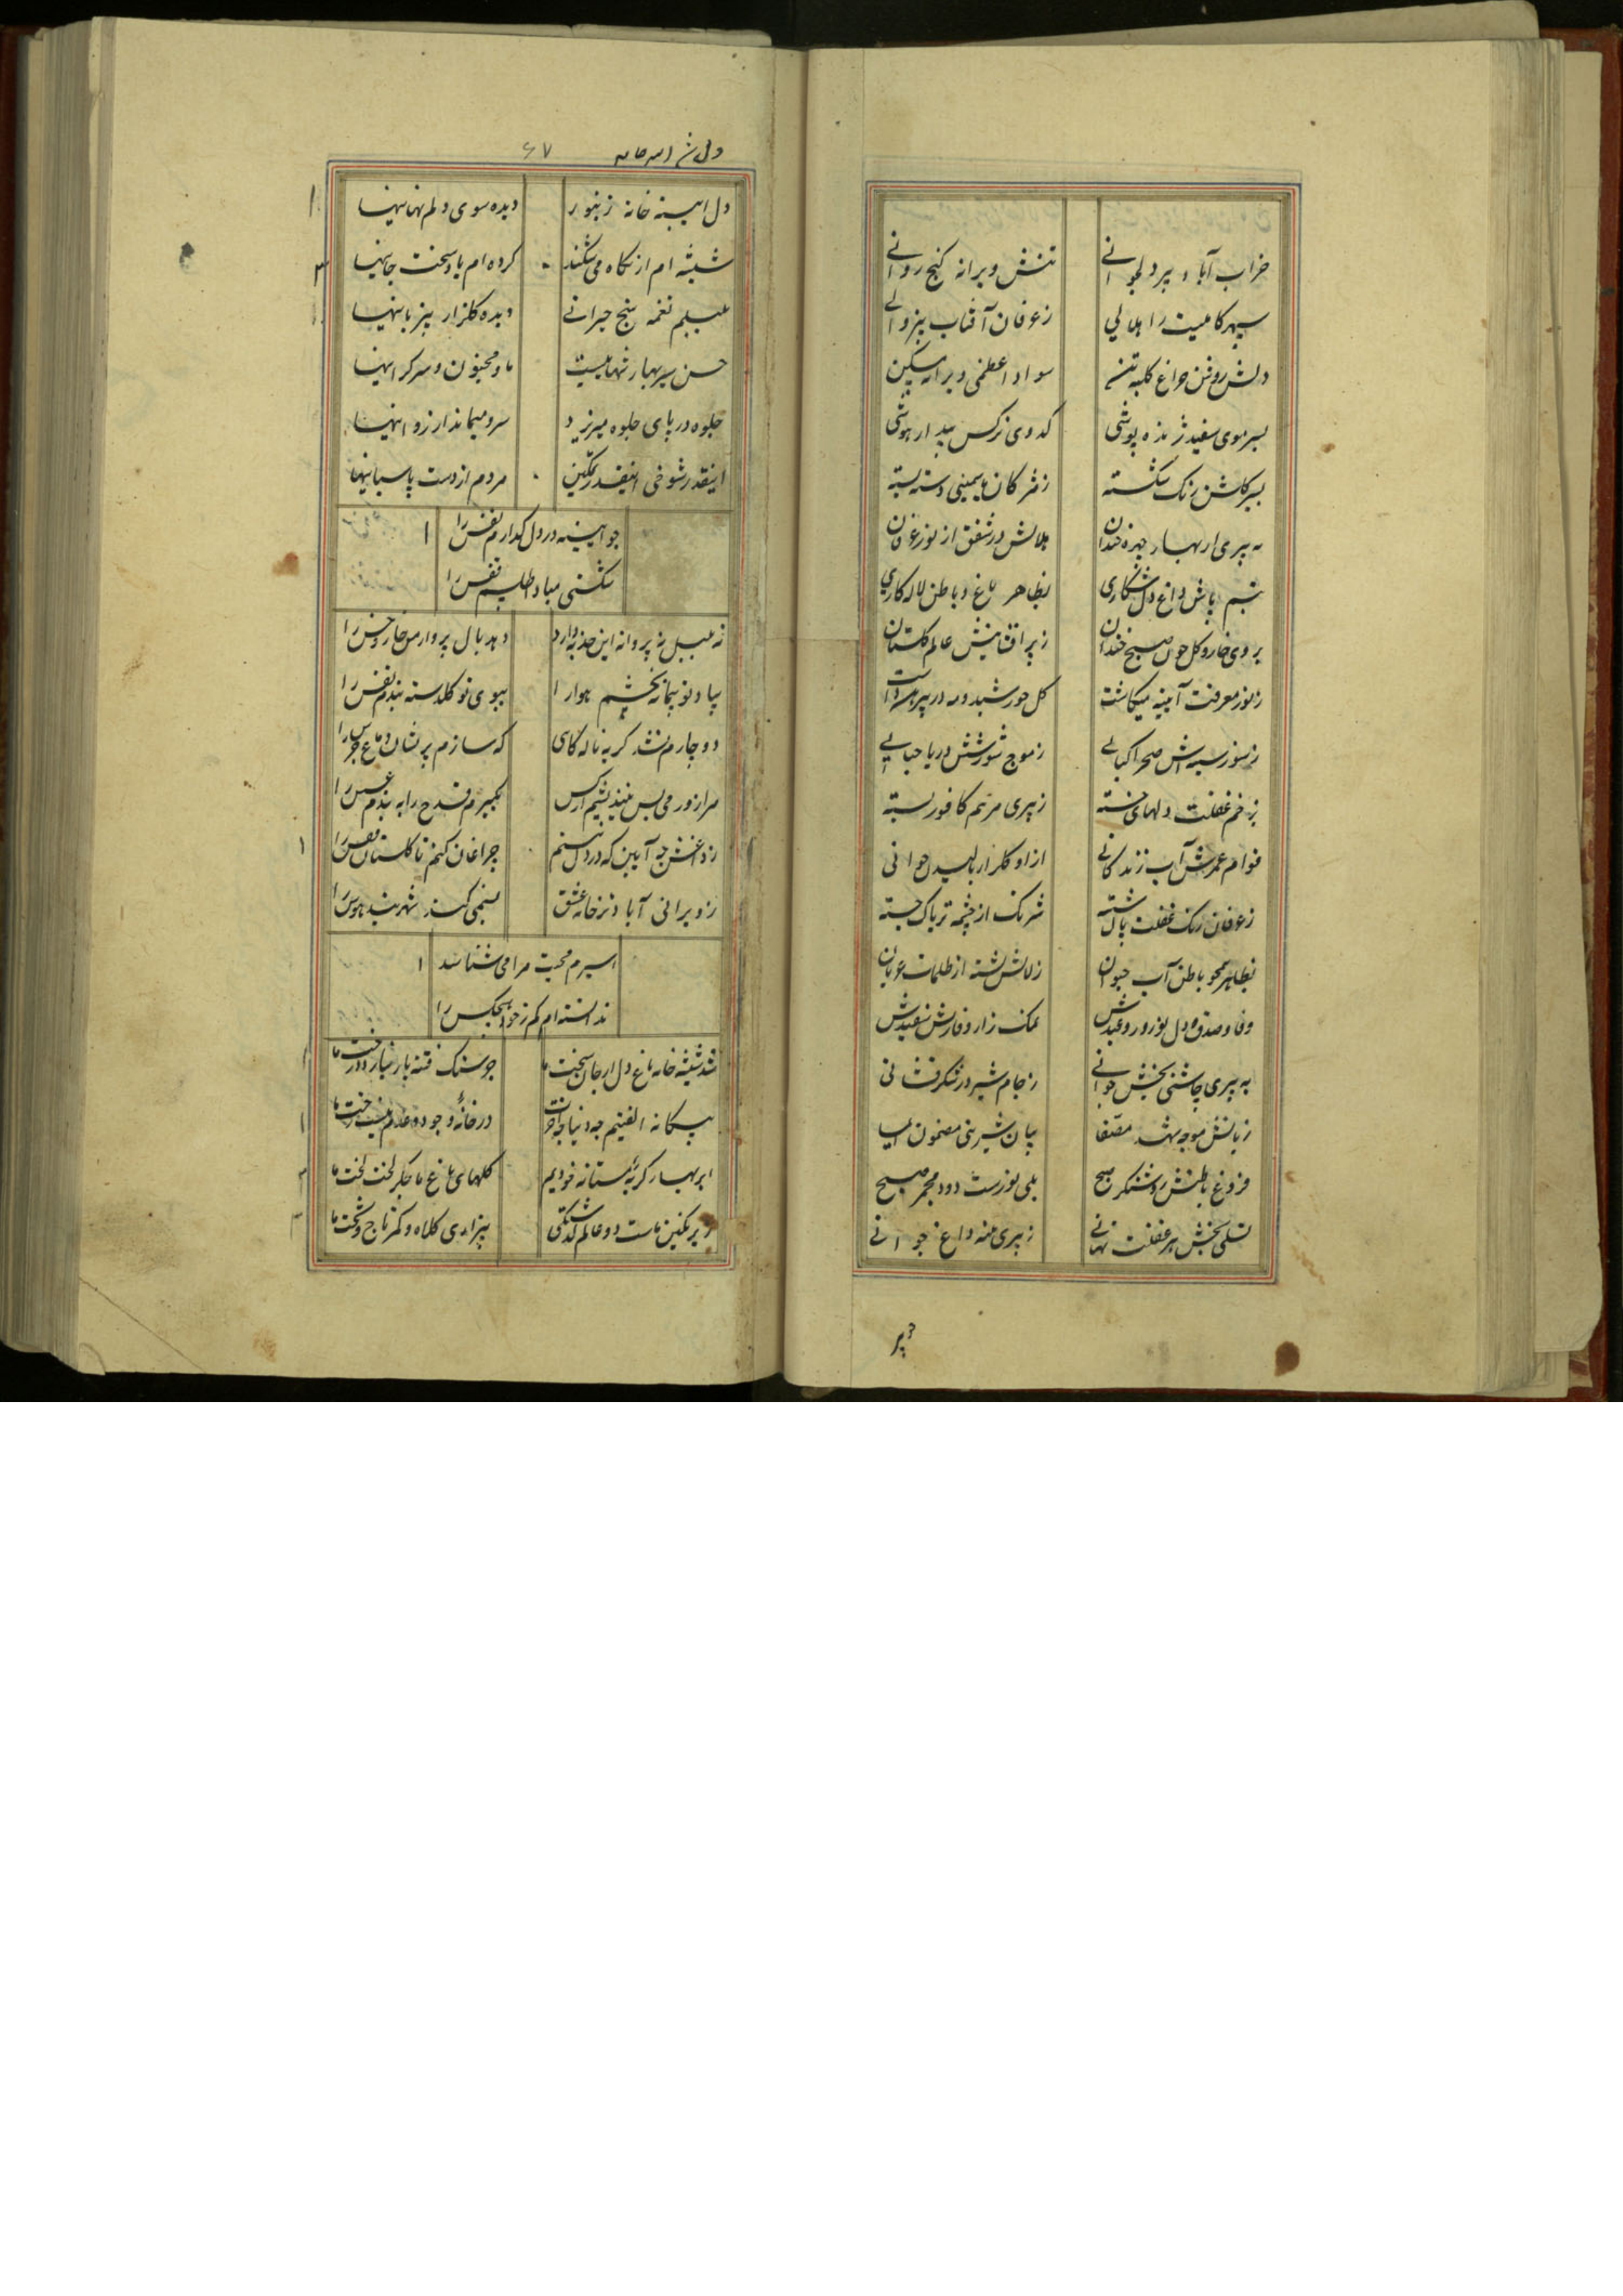 خراب آباد پیر دلجوانے تنش ویرانه کنج روانے
سپهر کاملیت را هلالی ز عرفان آفتاب بیزوالے
دلش روشن چراغ کلبه تن سواد اعظمی ویرانه مسکن
بسر موی سفید ژنده پوشی کدوی نرکس بیدار هوشی
بسیر کلشن رنک شکسته ز مژکان یاسمینی دسته بسته
به پیری از بهار چهره خندان هلالش در شفق از نور عرفان
تبسم پاش داغ دل شکاری بظاهر باغ و باطن لاله کاری
بروی خار و کل چون صبح خندان ز پر افشانیش عالم کلستان
ز نور معرفت آیینه میکاشت کل خورشید و مه در پیرهن داشت
ز سوز سینه اش صحرا کبابے ز موج شورشش دریا حبابے
بزخم غفلت دلهای خسته ز پیری مرهم کافور بسته
قوام عمرش آب زندکانے ازو کلزار بالیدن جوانی
ز عرفان رنک غفلت پاک شسته شرنک از چشمه تریاک جسته
بظاهر محو باطن آب حیوان زلالش شسته از ظلمات عریان
وفا و صدق دل نوروز و عیدش نمک زار وقارش سفیدش
به پیری چاشنی بخش جوانے ز جام شیر در شکرفشانی
زبانش موجه شهد مصفا بیان شیرینی مضمون
فروغ باطنش روشنکر صبح بلی نورست دود مجمر صبح
تسلی بخش هر غفلت نهانے ز پیری پنبه داغ جوانے
پیر
۶۷
دل آیینه خانه زنبور دیده سوی دلم نهانیها
شیشه ام از نکاه می شکند کرده ام یاد سخت جانیها
بلبلم نغمه سنج حیرانے دیده کلزار بیزبانیها
حسن سیر بهار تنهاییست ما و مجنون و سرکرانیها
جلوه در پای جلوه میریزد سرو میماند از روانیها
اینقدر شوخی اینقدر تمکین مردم از دست پاسبانیها
چو آیینه در دل کدازم نفس را
شکستی مباد اطلسم نفس را
نه بلبل نه پروانه این جذبه دارد دهد بال پرواز من خار و خس را
بیاد تو پیمانه بخشم هوا را ببوی تو کلدسته بندم نفس را
دوچارم نشد کریه ناله کاهی که سازم پریشان دماغ جرس را
مرا زور می بس نیندیشم از کس بکیرم قدح را به بندم عسس را
ز داغش چه آیین که در دل نبستم چراغان کنم تا کلستان قفس را
ز ویرانی آباد شد خانه عشق ستمی کند شهربند هوس را
اسیرم محبت مرا می شناسد
ندانسته ام کم ز خود هیچکس را
شد شیشه خانه باغ دل از جان سخت ما جز سنک فتنه بار نیارد درخت ما
بیکانه الفتیم چه دنیا چه آخرت در خانه وجود و عدم نیست رخت ما
ابر بهار کریه مستانه خودیم کلهای باغ ما جکر لخت لخت ما
زیر نکین ماست دو عالم شکستکی بیزاری کلاه و کمر تاج و تخت ما